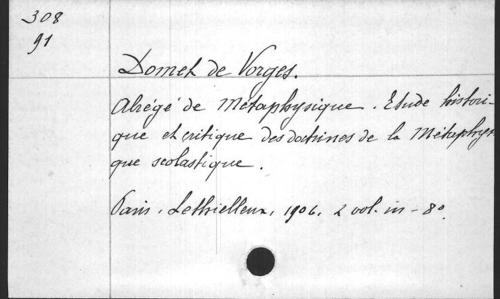 308
91
Domet de Vorges.
Abrégé de Métaphysique. Etude histori-
que et critique des doctrines de la Métaphysi-
que scolastique.
Paris, Lethielleux, 1906. 2 vol. in-8º.